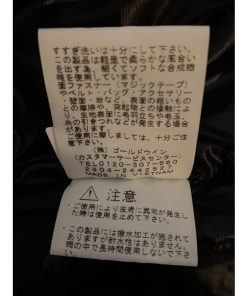 すすぎ洗いは十分にして下さい。
この製品は軽量で柔らかな風合い
を出す為、細くてソフトな合成繊
維を使用しています。
面ファスナー(マジックテープ)
やベルト・バッグ・アクセサリー
・壁面・岩など、表面の粗いもの
との摩擦や、突起物との接触によ
り、生地表面に毛羽立ちや毛玉、
糸の引きつれなどが発生する場合
があります。
ご使用に際しましては、十分ご注
意下さい。
(株) ゴールドウイン
(カスタマーサービスセンター)
TEL0120-307-560
MADE IN VIETNAM
注意
・ご使用により皮膚に異常が発生し
た時は使用を止めて下さい。
・この製品には撥水加工が施されて
ありますが耐水性はありません。
雨の中で長時間使用しないで下さ
い。